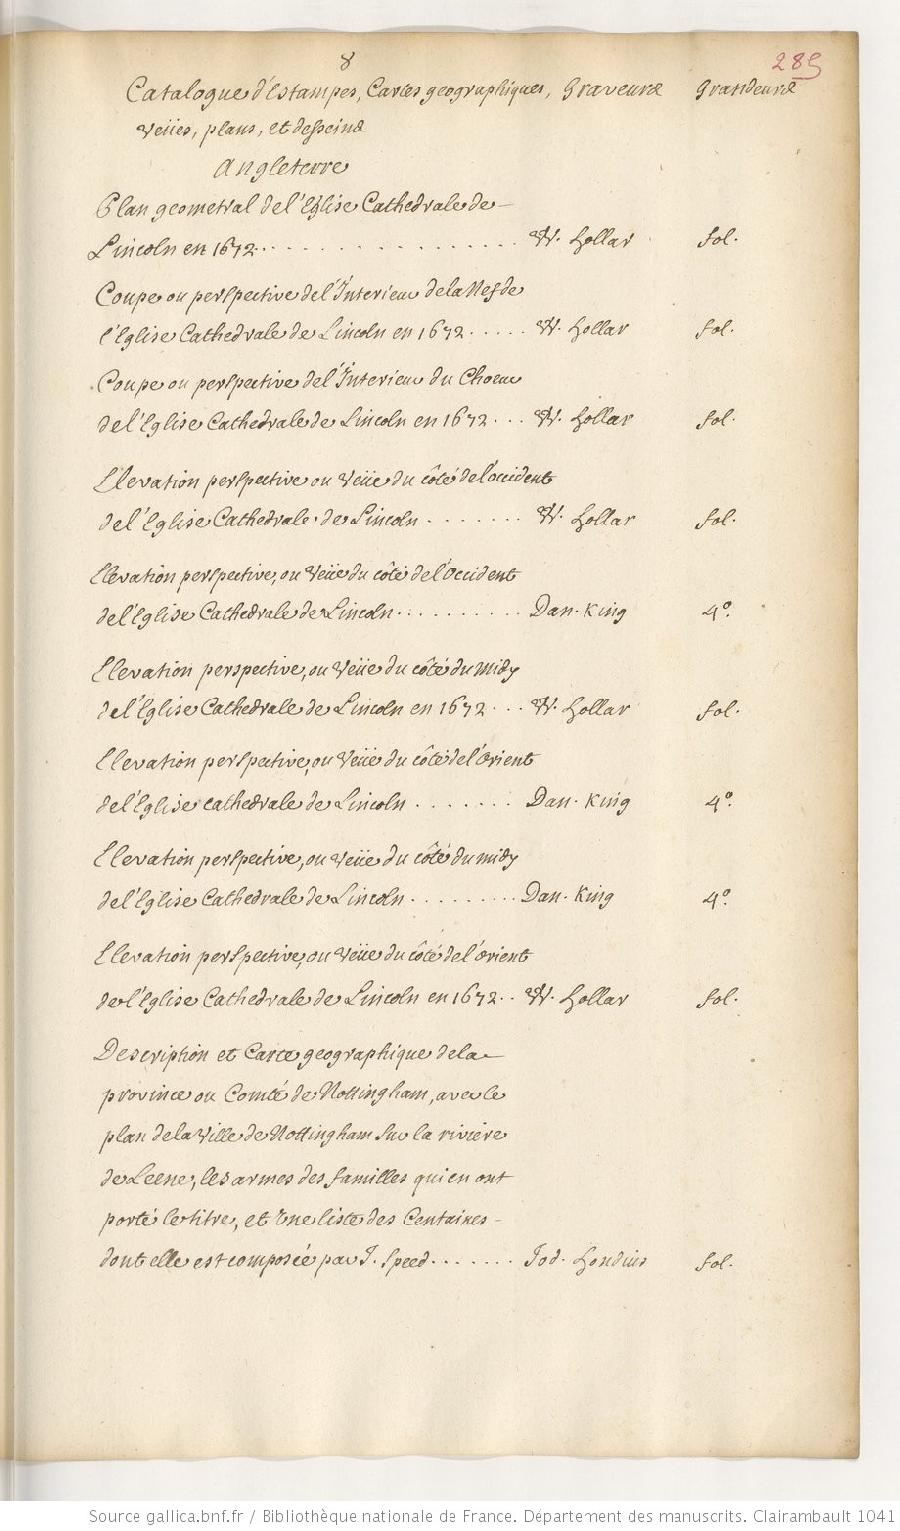 8
285
Catalogue d'Estampes, Cartes geographiques, Graveurs Grandeurs
Veües, plans, et desseins
Angleterre
Plan geometral de l'Eglise Cathedrale de
Lincoln en 1672 . . . . . . . . . . . . . . . . . W. Hollar fol.
Coupe ou perspective de l'Interieur de la Nef de
l'Eglise Cathedrale de Lincoln en 1672 . . . . . W. Hollar fol.
Coupe ou perspective de l'Interieur du Choeur
de l'Eglise Cathedrale de Lincoln en 1672 . . . W. Hollar fol.
Elevation perspective ou Veüe du côté de l'occident
de l'Eglise Cathedrale de Lincoln . . . . . . . W. Hollar fol.
Elevation perspective, ou Veüe du côté de l'Occident
de l'Eglise Cathedrale de Lincoln . . . . . . . . . . Dan. King 4°.
Elevation perspective, ou Veüe du côté du midy
de l'Eglise Cathedrale de Lincoln en 1672 . . . W. Hollar fol.
Elevation perspective, ou Veüe du côté de l'Orient
de l'Eglise cathedrale de Lincoln . . . . . . . Dan. King 4°.
Elevation perspective, ou Veüe du côté du midy
de l'Eglise Cathedrale de Lincoln . . . . . . . . . Dan. King 4°.
Elevation perspective, ou Veüe du côté de l'orient
de l'Eglise Cathedrale de Lincoln en 1672 . . W. Hollar fol.
Description et Carte geographique de la
province ou Comté de Nottingham, avec le
plan de la Ville de Nottingham sur la riviere
de Leene, les armes des familles qui en ont
porté le titre, et Une liste des Centaines
dont elle est composée par J. Speed . . . . . . . Jod. Hondius fol.
Source gallica.bnf.fr / Bibliothèque nationale de France. Département des manuscrits. Clairambault 1041